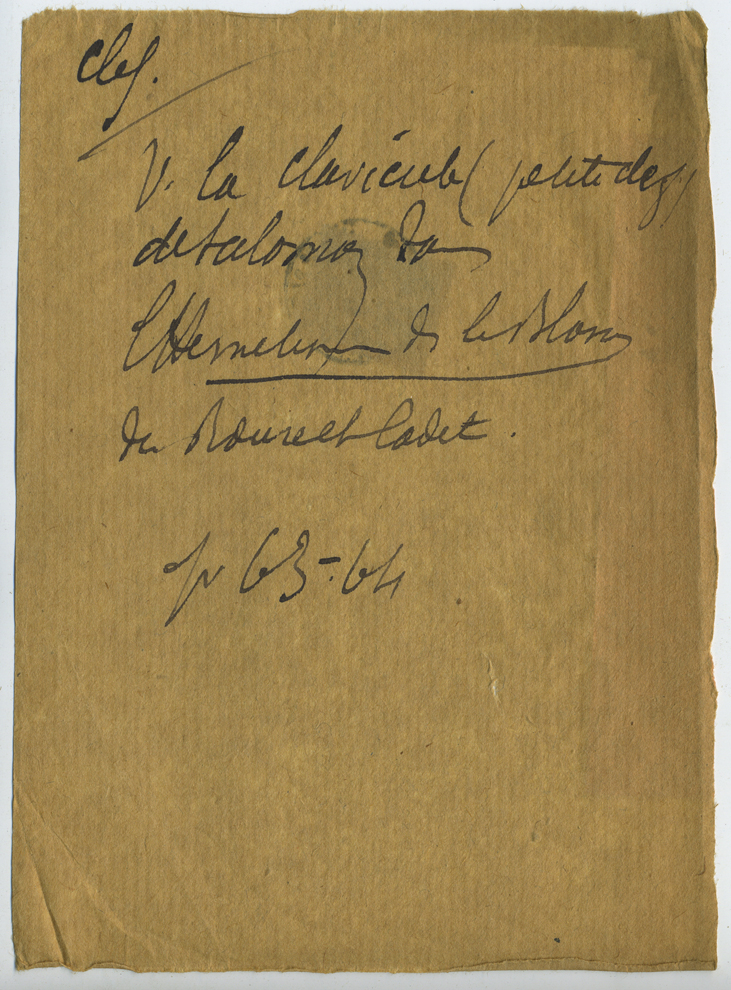 Clef.
V. la clavicule (petite clef)
de Salomon dans
l'Hermetisme ds le Blason
du Roure et Cadet.
p 63-64